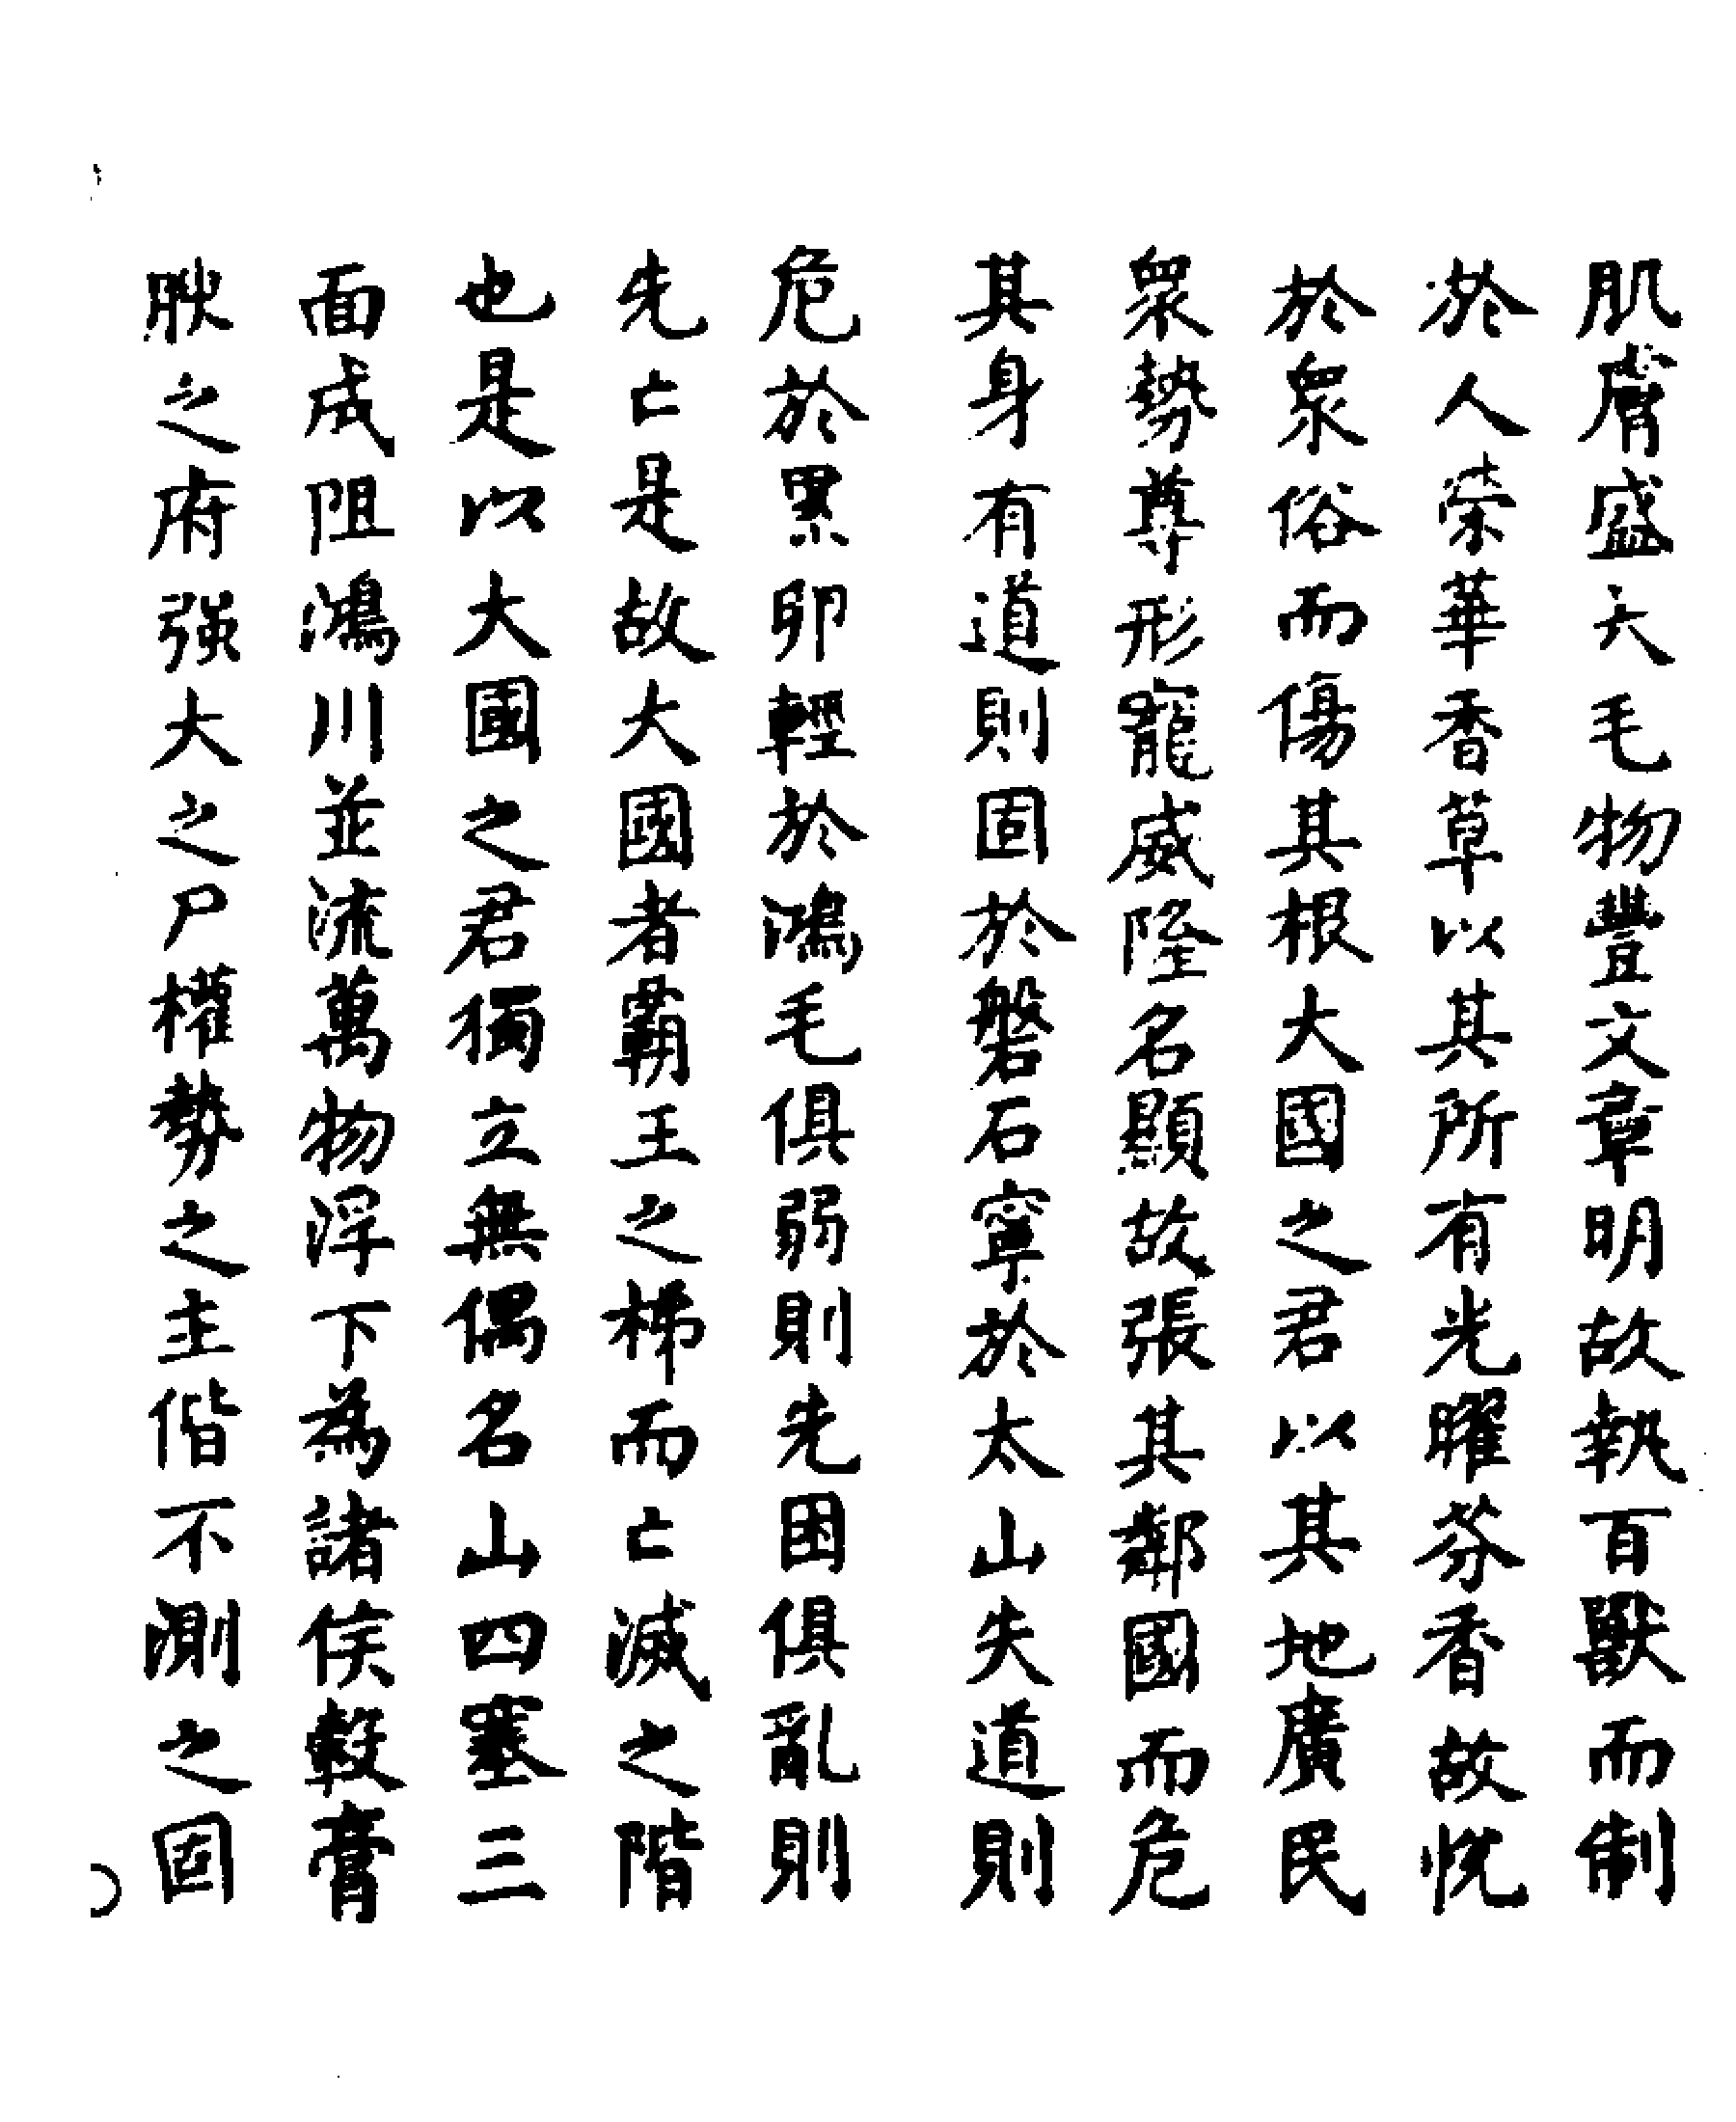 肌膚盛大毛物豐文章明故執百獸而制
於人榮華香草以其所有光曜芬香故悦
於衆俗而傷其根大國之君以其地廣民
衆勢尊形寵威隆名顯故張其鄰國而危
其身有道則固於磐石寧於太山失道則
危於累卵輕於鴻毛俱弱則先困俱亂則
先亡是故大國者霸王之梯而亡滅之階
也是以大國之君獨立無偶名山四塞三
面成阻鴻川並流萬物浮下為諸侯轂膏
腴之府强大之尸權勢之主偕不測之固